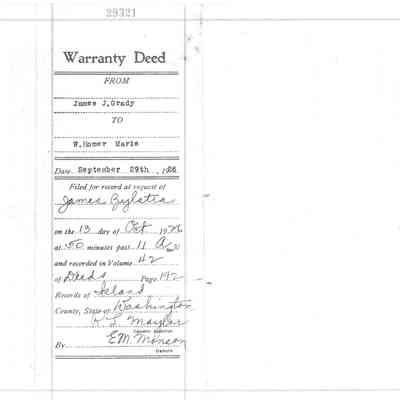 29321
Warranty Deed
FROM
James J, Grady
TO
W, Homer Maris
Date September 29th , 1926
Filed for record at request of
James Zylstra
on the 13 day of Oct 1926
at 50 minutes past 11 A
and recorded in Volume 42
of Deeds Page 192
Records of Island
County, State of Washington
County Auditor
By E M. Monson
Deputy